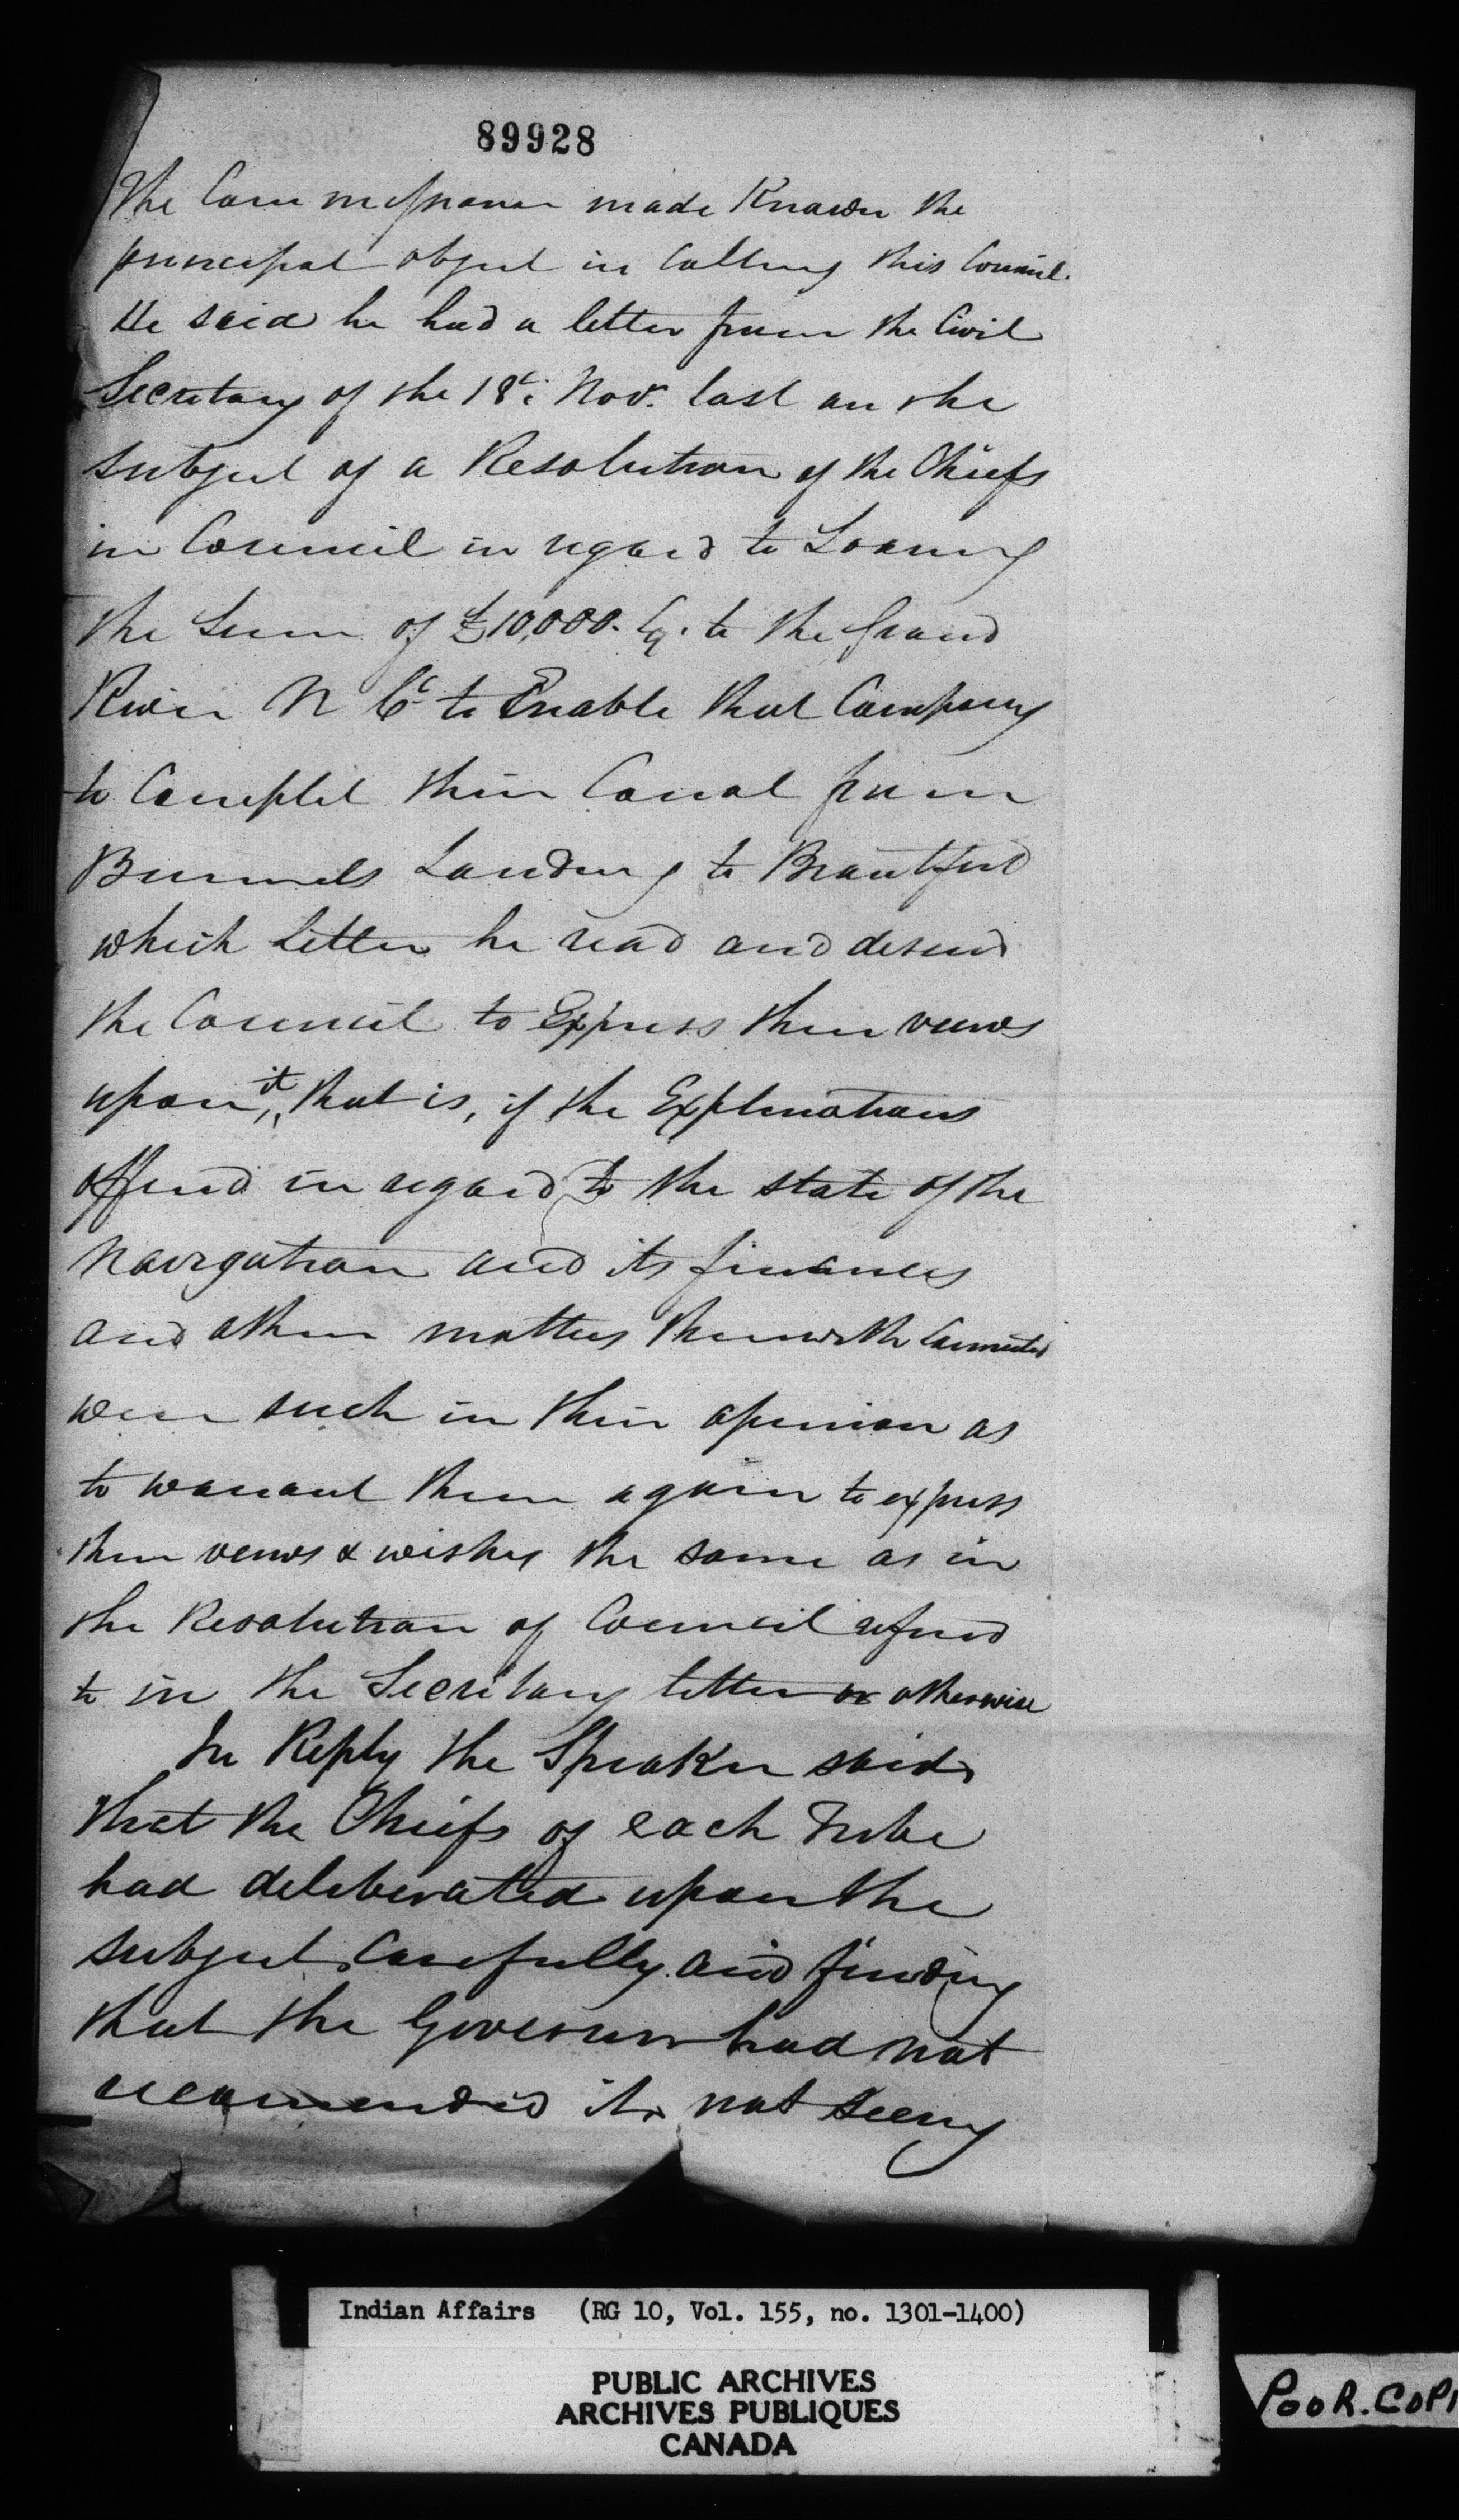 89928
The Commissioner made Known the
principal object in Calling this Council.
He said he had a letter from the Civil
Secretary of the 18t. Nov. last on the
subject of a Resolution of the Chiefs
in Council in regard to Loaning
the Sum of £10,000. Cy. to the Grand
River N Co to Enable that Company
to Complet their Canal from
Burnnels Landing to Brantford
which Letter he read and desired
the Council to Express their views
upon it, that is, if the Explanations
offered in regard to the state of the
Navigation and its finances
and other matters therewith Connected
were such in their opinion as
to warrant them again to express
their views & wishes the same as in
the Resolution of Council refered
to in the Secretary letter or otherwise
In Reply the Speaker said
that the Chiefs of each Tribe
had deliberated upon the
subject Carefully and finding
that the Governor had not
recommended it, not seeing
Indian Affairs (RG 10, Vol. 155, no. 1301-1400)
PUBLIC ARCHIVES
ARCHIVES PUBLIQUES
CANADA
POOR.COPI